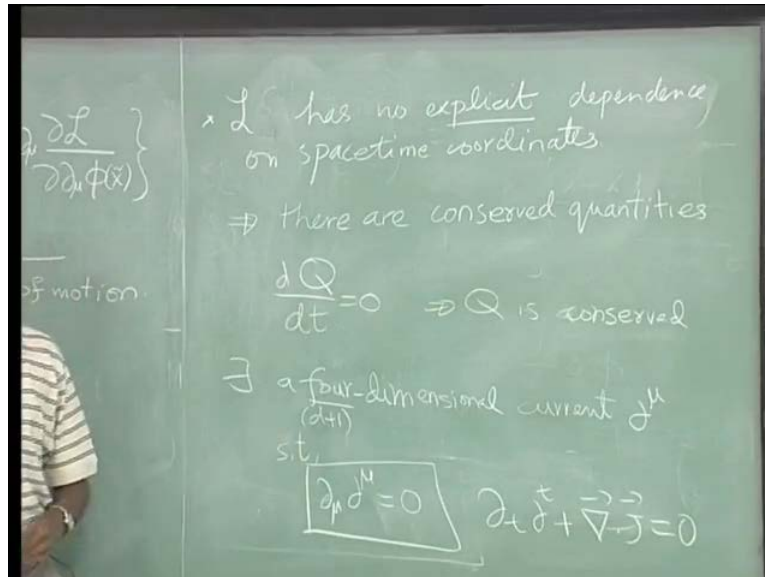 ∂μ ∂ℒ / ∂∂μ ϕ(x̃) }
of motion.
* ℒ has no explicit dependence
on spacetime coordinates.
⇒ there are conserved quantities
dQ/dt = 0 ⇒ Q is conserved
∃ a four-dimensional current j^μ
(d+1)
s.t.
∂μ j^μ = 0 ∂t j^t + ∇⃗.J⃗ = 0